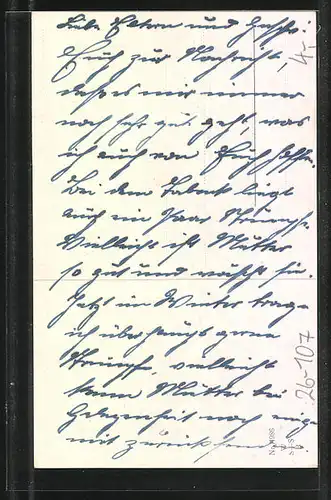 Liebe Eltern und Geschw.!
Euch zur Nachricht,
daß es mir immer
noch sehr gut geht, was
ich auch von Euch hoffe.
Bei dem Paket liegt
auch ein Paar Strümpfe.
Vielleicht ist Mutter
so gut und wäscht sie.
Jetzt im Winter trage
ich überhaupt gerne
Strümpfe, vielleicht
kann Mutter bei
Gelegenheit noch einige
mit zurück
4,-
26-107